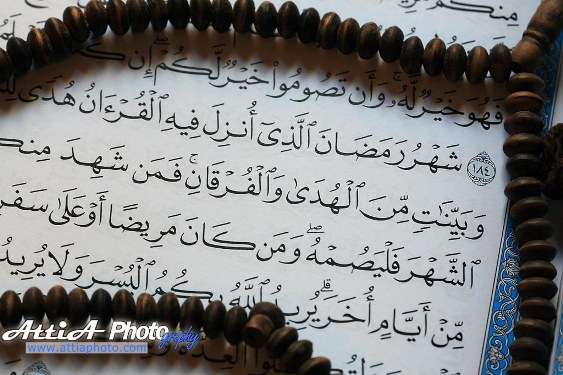 مِنكُم
فَهُوَ خَيْرٌ لَّهُۥ ۚ وَأَن تَصُومُوا۟ خَيْرٌ لَّكُمْ ۖ إِن
١٨٤ شَهْرُ رَمَضَانَ ٱلَّذِىٓ أُنزِلَ فِيهِ ٱلْقُرْءَانُ هُدًى
وَبَيِّنَٰتٍ مِّنَ ٱلْهُدَىٰ وَٱلْفُرْقَانِ ۚ فَمَن شَهِدَ
ٱلشَّهْرَ فَلْيَصُمْهُ ۖ وَمَن كَانَ مَرِيضًا أَوْ عَلَىٰ
مِّنْ أَيَّامٍ أُخَرَ ۗ يُرِيدُ ٱللَّهُ بِكُمُ ٱلْيُسْرَ وَلَا يُرِيدُ
ٱلْعِدَّةَ
AttiA Photography
www.attiaphoto.com